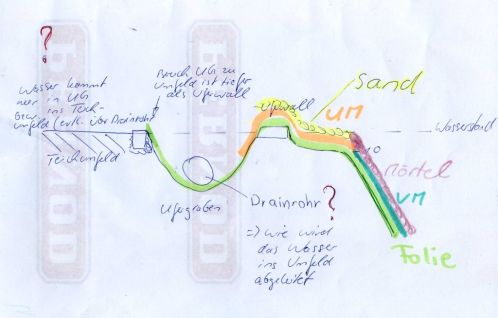 ?
Wasser kommt
nur in UG
bzw. ins Teich-
umfeld (evtl. über Drainrohr)
Teichumfeld
Bruch UG zu
Umfeld ist tiefer
als Uferwall
Uferwall
Sand
UM
Wasserstand
10
Mörtel
VM
Folie
Ufergraben
Drainrohr ?
=> wie wird
das Wasser
ins Umfeld
abgeleitet